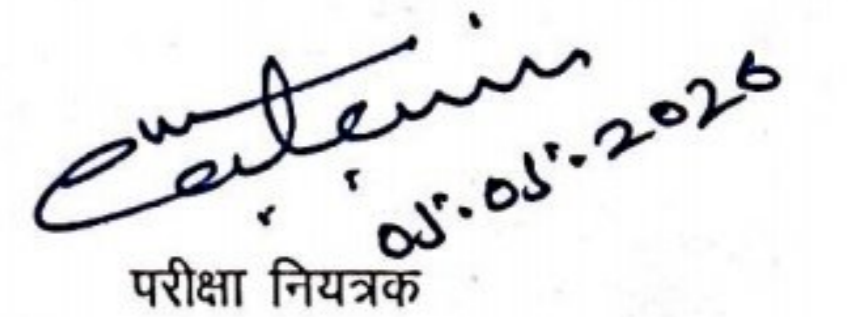 05.05.2026
परीक्षा नियत्रक